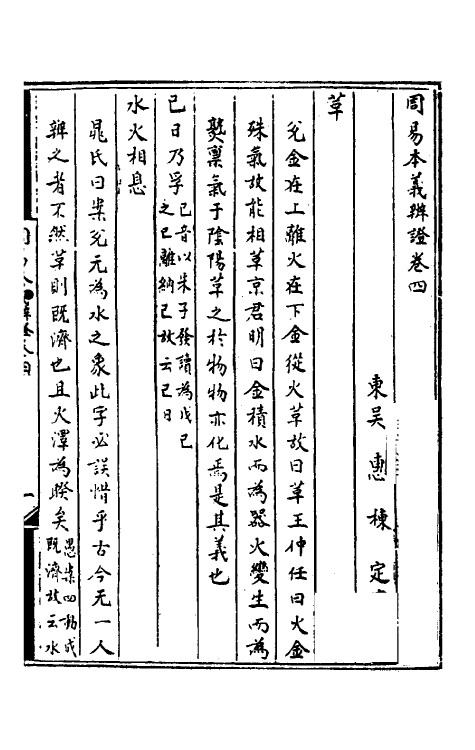 周易本義辨證卷四
東吳惠棟定
革
兌金在上離火在下金從火革故曰革王仲任曰火金
殊氣故能相革京君明曰金積水而為器火變生而為
爨稟氣于陰陽革之於物物亦化焉是其義也
已日乃孚已音以朱子發讀為戊己
之己離納己故云己日
水火相息
晁氏曰案兌元為水之象此字必誤惜乎古今无一人
辨之者不然革則既濟也且火澤為睽矣愚案四動成
既濟故云水